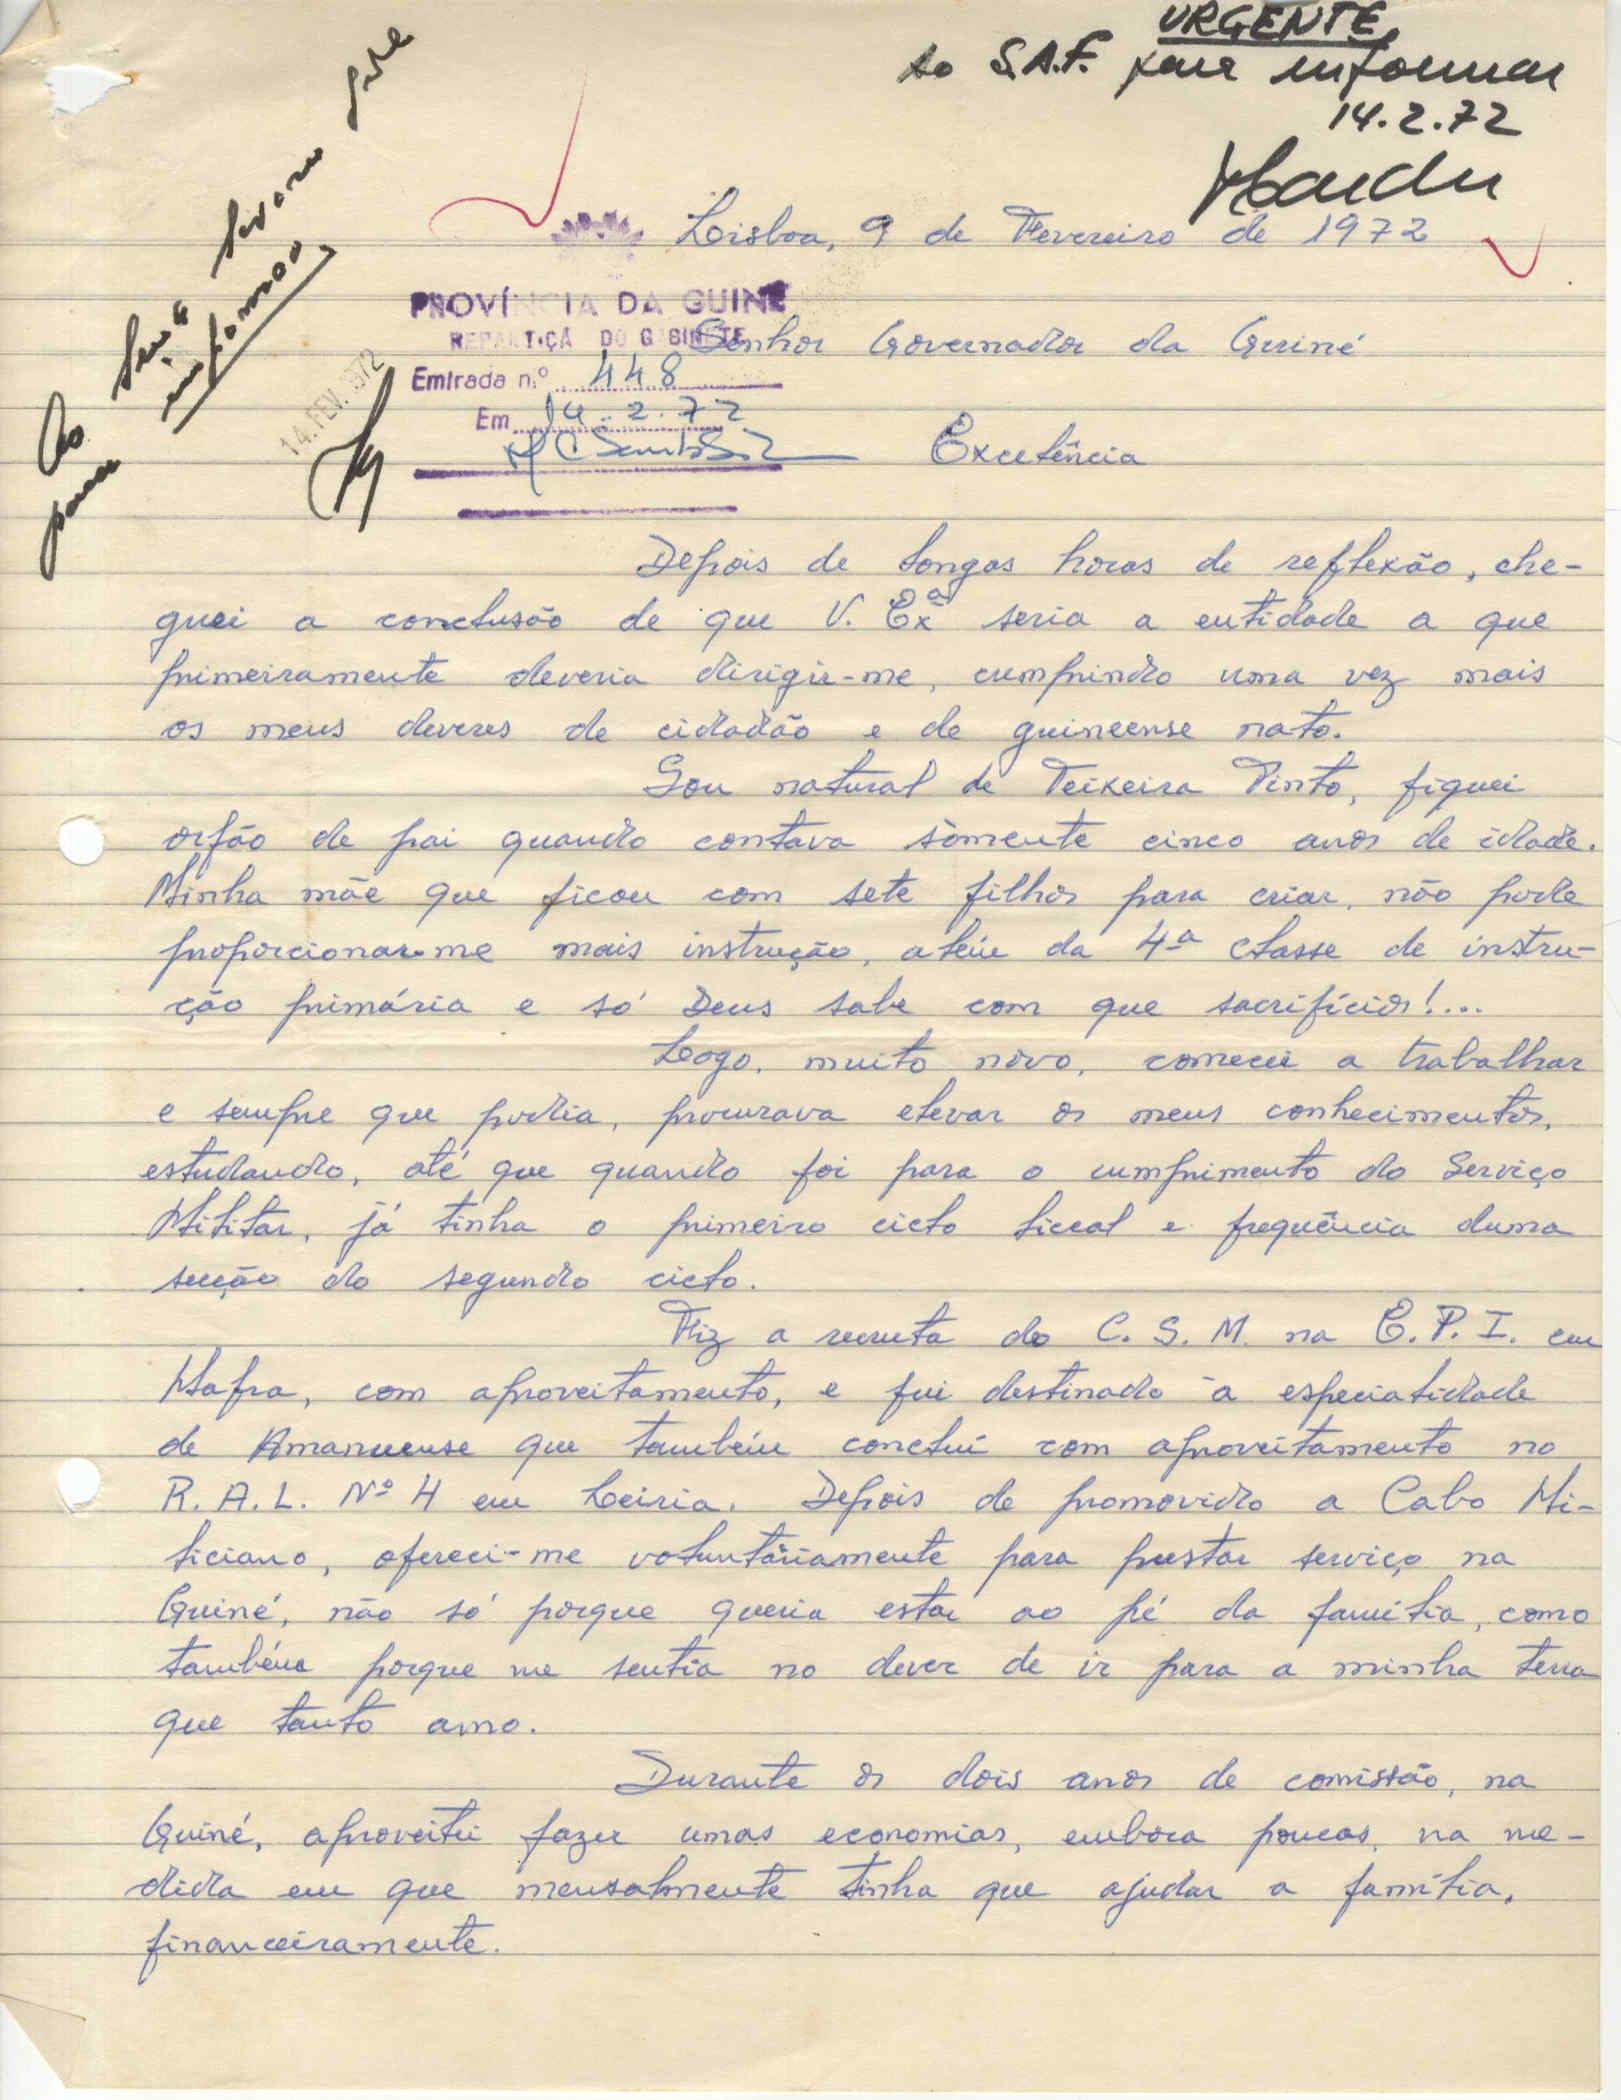 URGENTE
Ao S.A.F. para informar
14.2.72
Lisboa, 9 de Fevereiro de 1972
PROVÍNCIA DA GUINÉ
REPARTIÇÃ DO GABINETE
Entrada n.º 448
Em 14.2.72
14. FEV. 1972
Ao
para informar
Senhor Governador da Guiné
Excelência
Depois de longas horas de reflexão, che-
guei a conclusão de que V. Exª seria a entidade a que
primeiramente deveria dirigir-me, cumprindo uma vez mais
os meus deveres de cidadão e de guineense nato.
Sou natural de Teixeira Pinto, fiquei
orfão de pai quando contava sòmente cinco anos de idade.
Minha mãe que ficou com sete filhos para criar, não pode
proporcionar-me mais instrução, além da 4ª classe de instru-
ção primária e só Deus sabe com que sacrifícios!...
Logo, muito novo, comecei a trabalhar
e sempre que podia, procurava elevar os meus conhecimentos,
estudando, até que quando foi para o cumprimento do Serviço
Militar, já tinha o primeiro ciclo liceal e frequência duma
secção do segundo ciclo.
Fiz a recruta do C. S. M. na E. P. I. em
Mafra, com aproveitamento, e fui destinado à especialidade
de Amanuense que também concluí com aproveitamento no
R. A. L. Nº 4 em Leiria. Depois de promovido a Cabo Mi-
liciano, ofereci-me voluntàriamente para prestar serviço na
Guiné, não só porque queria estar ao pé da família, como
também porque me sentia no dever de ir para a minha terra
que tanto amo.
Durante os dois anos de comissão, na
Guiné, aproveitei fazer umas economias, embora poucas, na me-
dida em que mensalmente tinha que ajudar a família,
financeiramente.